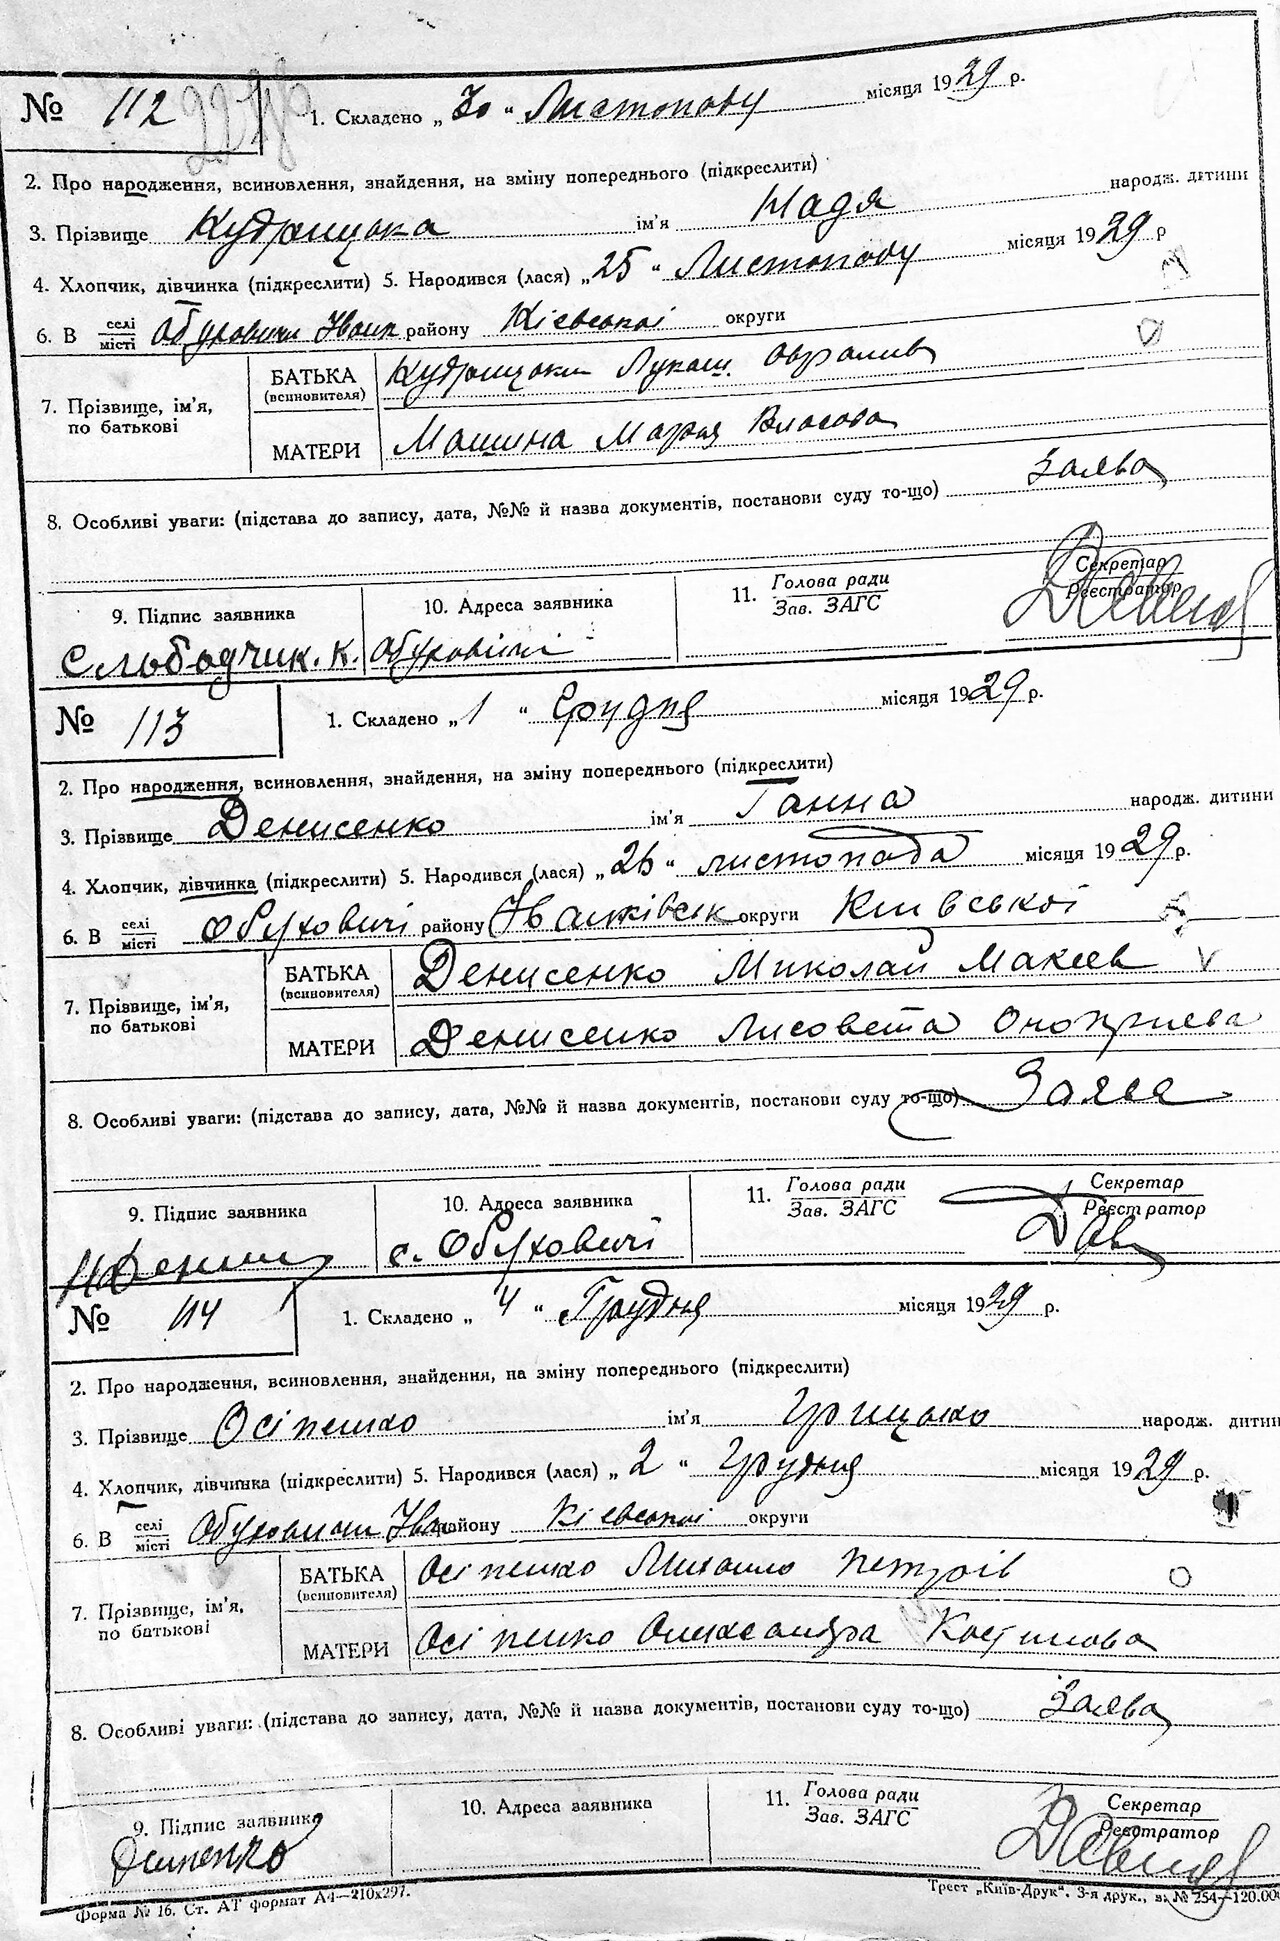 № 112 1. Складено „30“ Листопаду місяця 1929 р.
2. Про народження, всиновлення, знайдення, на зміну попереднього (підкреслити)
3. Прізвище Кудрицька ім'я Надя народж. дитини
4. Хлопчик, дівчинка (підкреслити) 5. Народився (лася) „25“ Листопаду місяця 1929 р
6. В селі місті Обуховичи Іванк району Кієвської округи
7. Прізвище, ім'я, по батькові
БАТЬКА (всиновителя) Кудрицьки Лукаш
МАТЕРИ Машина Мария Власова
8. Особливі уваги: (підстава до запису, дата, №№ й назва документів, постанови суду то-що) Заява
9. Підпис заявника 10. Адреса заявника 11. Голова ради Зав. ЗАГС Секретар Реєстратор
Слободчик. К. Обуховичі
№ 113 1. Складено „1“ Грудня місяця 1929 р.
2. Про народження, всиновлення, знайдення, на зміну попереднього (підкреслити)
3. Прізвище Денисенко ім'я Ганна народж. дитини
4. Хлопчик, дівчинка (підкреслити) 5. Народився (лася) „26“ листопада місяця 1929 р.
6. В селі місті Обуховичі району Іванківськ округи Київської
7. Прізвище, ім'я, по батькові
БАТЬКА (всиновителя) Денисенко Миколай Макеев
МАТЕРИ Денисенко Лисовета Оноприева
8. Особливі уваги: (підстава до запису, дата, №№ й назва документів, постанови суду то-що) Заява
9. Підпис заявника 10. Адреса заявника 11. Голова ради Зав. ЗАГС Секретар Реєстратор
с. Обуховичі
№ 114 1. Складено „4“ Грудня місяця 1929 р.
2. Про народження, всиновлення, знайдення, на зміну попереднього (підкреслити)
3. Прізвище Осіпенко ім'я Грицько народж. дитини
4. Хлопчик, дівчинка (підкреслити) 5. Народився (лася) „2“ Грудня місяця 1929 р.
6. В селі місті Обуховичи Іван району Кієвської округи
7. Прізвище, ім'я, по батькові
БАТЬКА (всиновителя) Осіпенко Михайло Петрів
МАТЕРИ Осіпенко Олександра Костинова
8. Особливі уваги: (підстава до запису, дата, №№ й назва документів, постанови суду то-що) Заява
9. Підпис заявника 10. Адреса заявника 11. Голова ради Зав. ЗАГС Секретар Реєстратор
Форма № 16. Ст. АТ формат А4—210х297. Трест „Київ-Друк“. 3-я друк., з. № 254—120.00